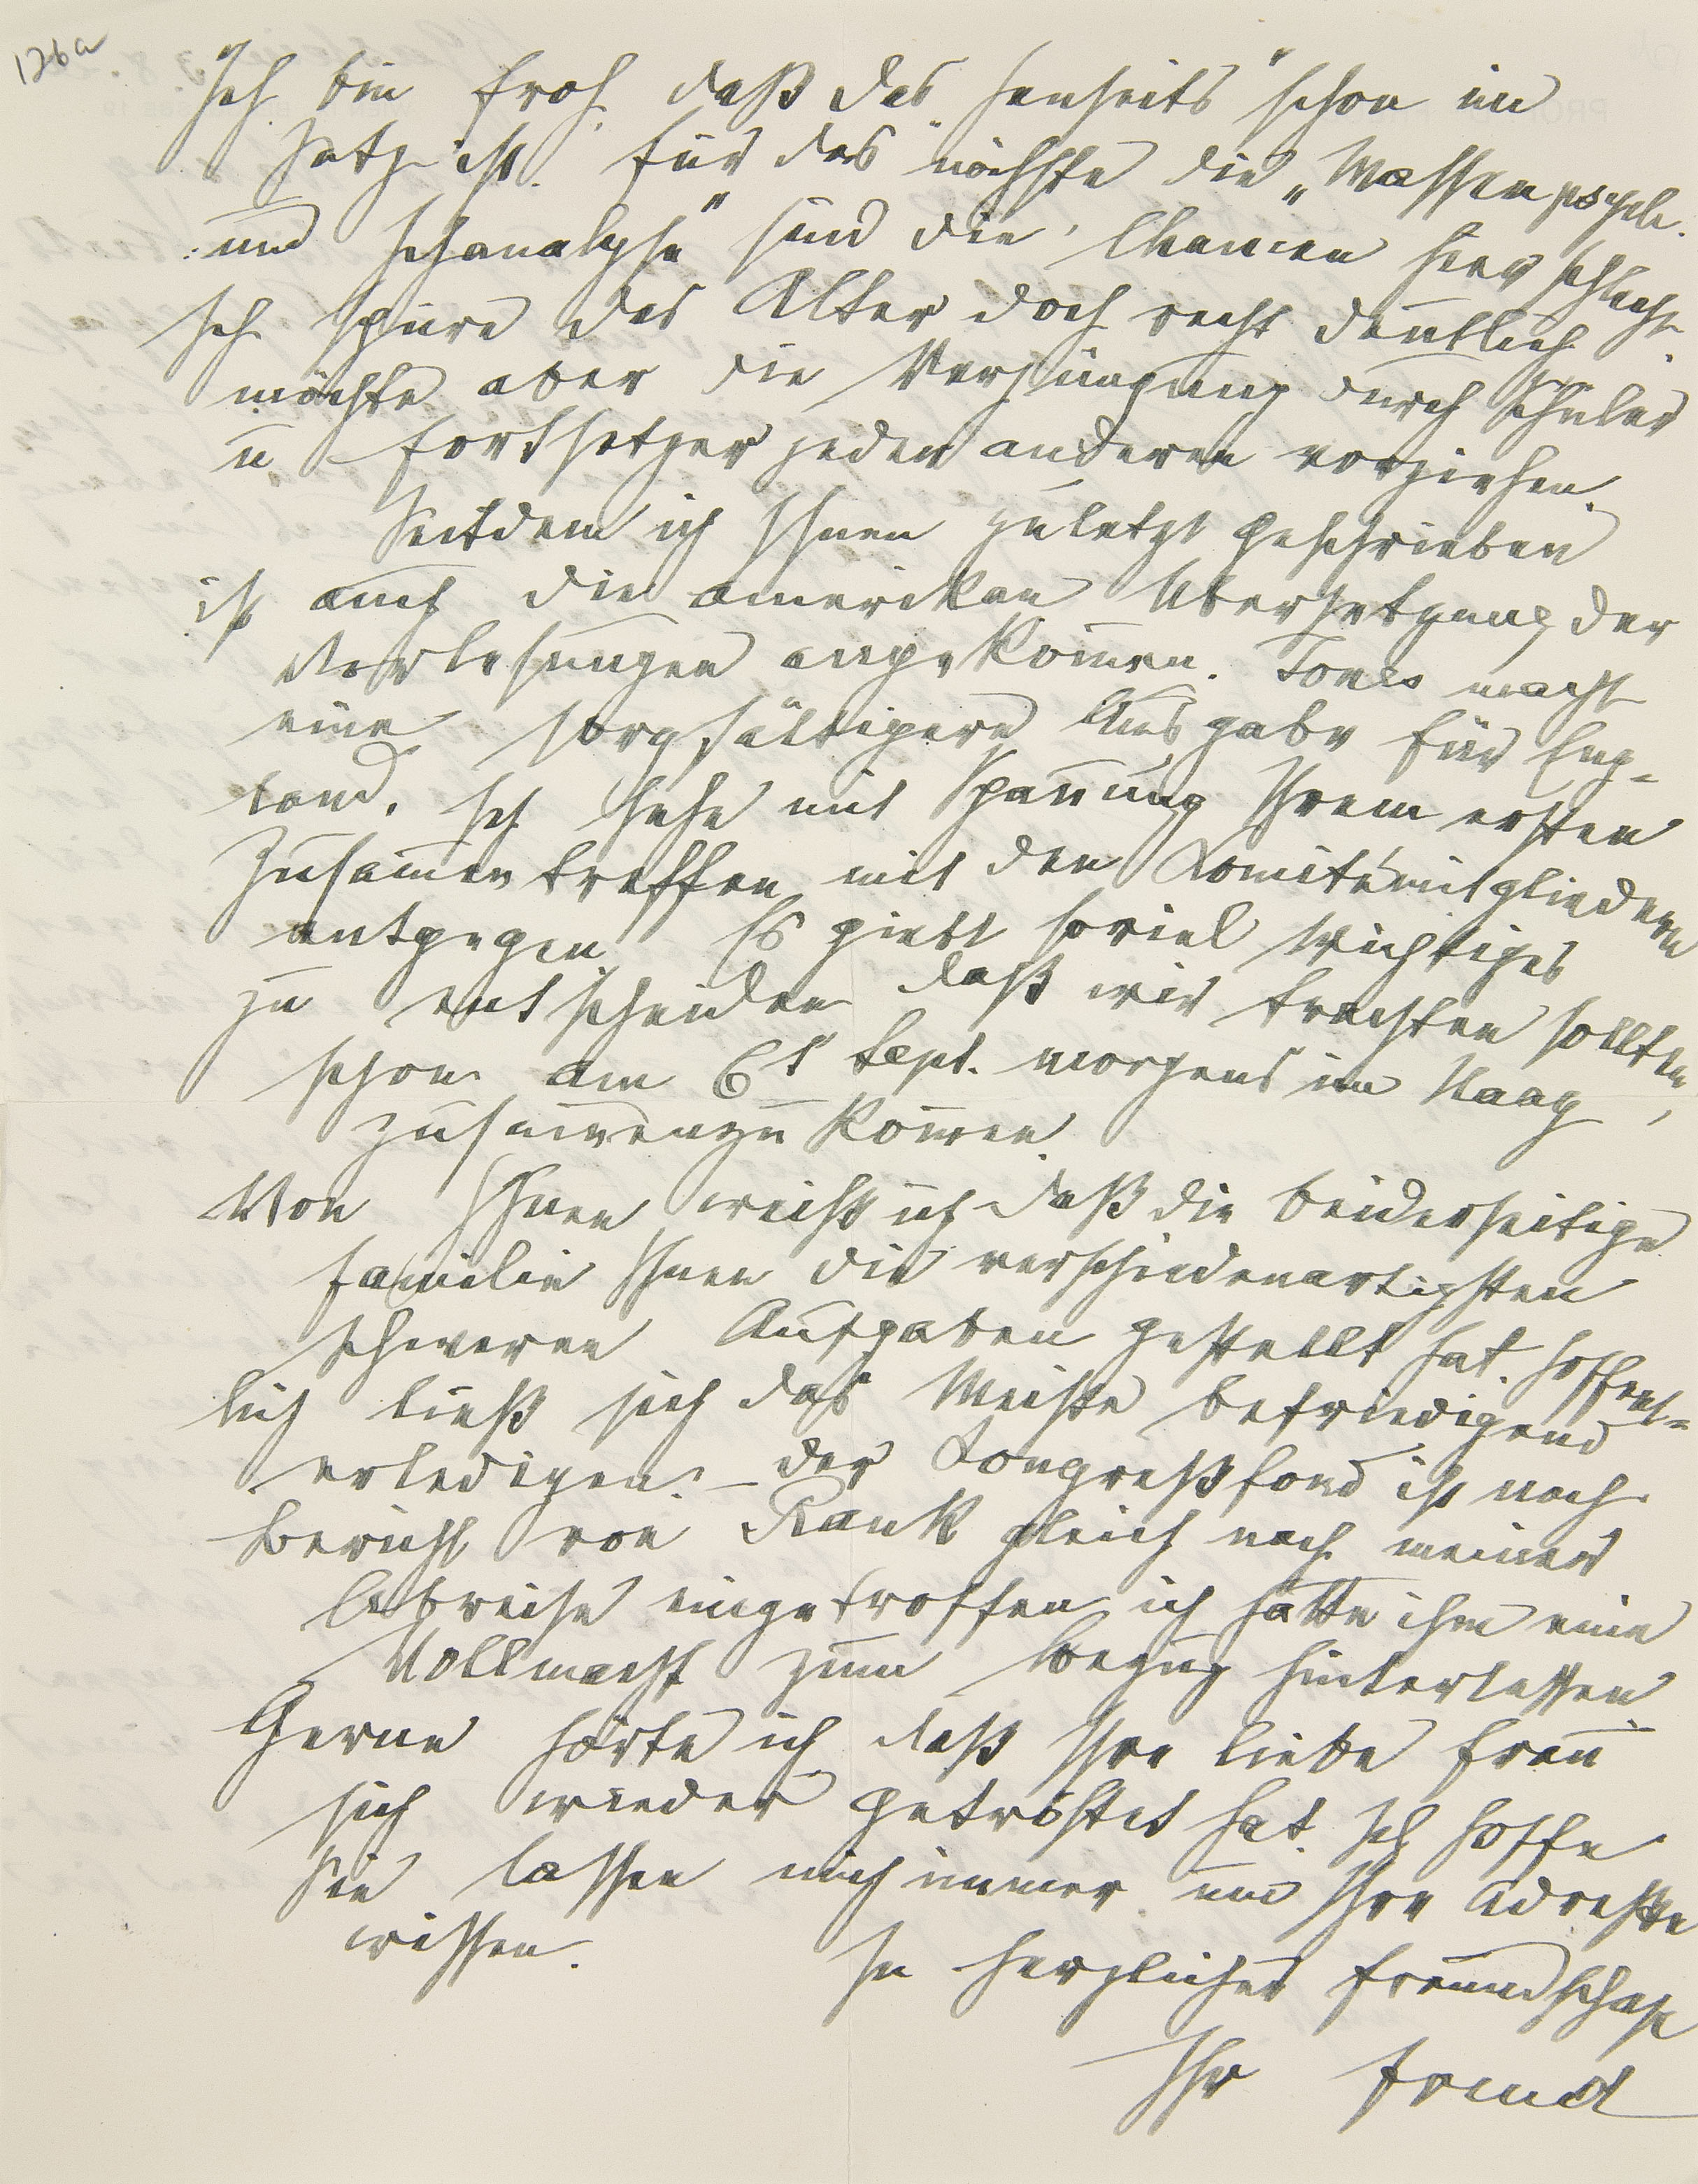 126a
Ich bin froh, daß das „Jenseits" schon im
Satz ist. Für das nächste die „Massenpsych.
und Ichanalyse" sind die Chancen hier schlecht.
Ich spüre das Alter doch recht deutlich,
möchte aber die Verjüngung durch Schüler
u Fortsetzer jeder anderen vorziehen.
Seitdem ich Ihnen zuletzt geschrieben
ist auch die amerikan Übersetzung der
Vorlesungen angekommen. Jones macht
eine sorgfältigere Ausgabe für Eng-
land. Ich sehe mit Spannung Ihrem ersten
Zusammentreffen mit den Komitémitgliedern
entgegen. Es giebt soviel Wichtiges
zu entscheiden daß wir trachten sollten,
schon am 6t Sept. morgens im Haag
zusammenzukommen.
Von Ihnen weiß ich, daß die beiderseitige
Familie Ihnen die verschiedenartigsten
schweren Aufgaben gestellt hat. Hoffent-
lich ließ sich das Meiste befriedigend
erledigen. – Der Kongreßfond ist nach
Bericht von Rank gleich nach meiner
Abreise eingetroffen, ich hatte ihm eine
Vollmacht zum Bezug hinterlassen.
Gerne hörte ich, daß Ihre liebe Frau
sich wieder getröstet hat. Ich hoffe
Sie lassen mich immer um Ihre Adresse
wissen.
In herzlicher Freundschaft
Ihr Freud